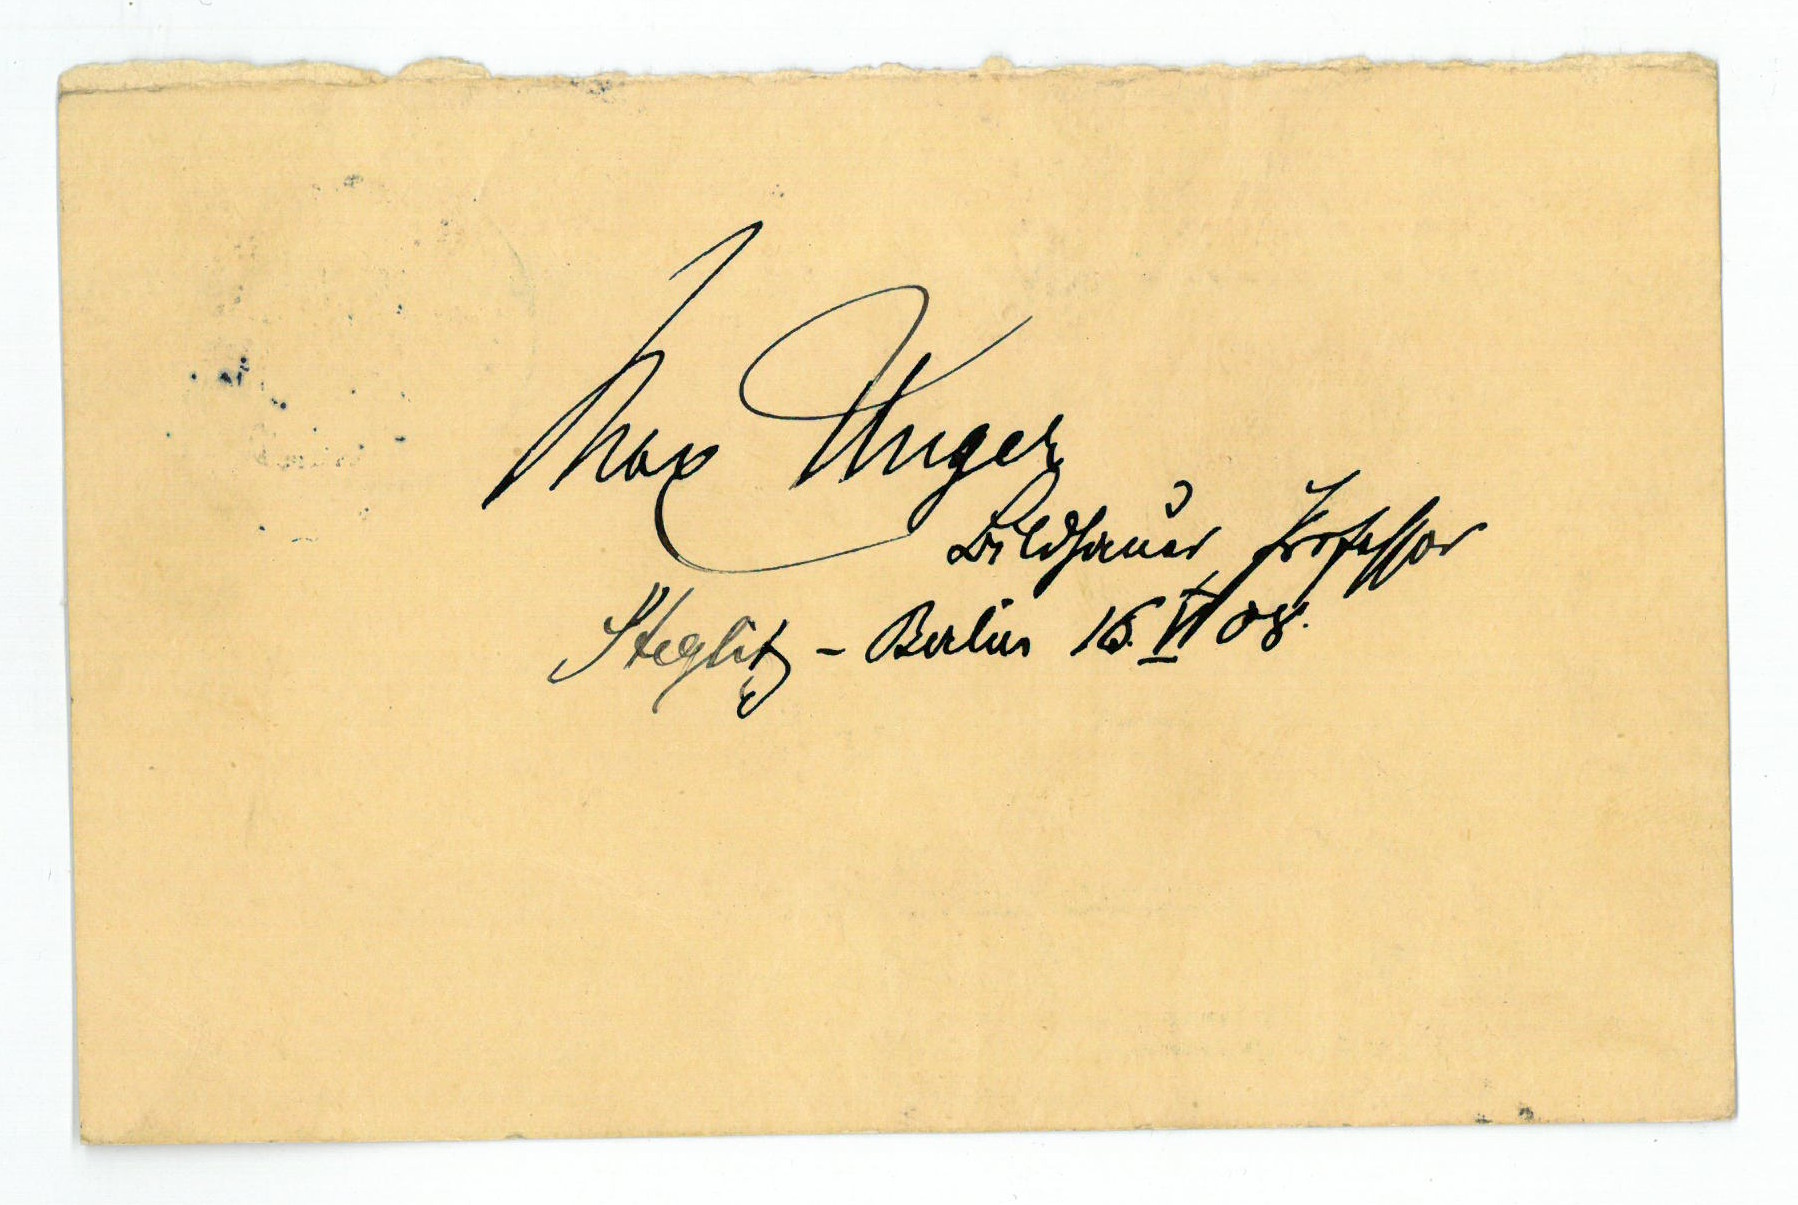 Max Unger
Bildhauer Professor
Steglitz - Berlin 16. VI 08.